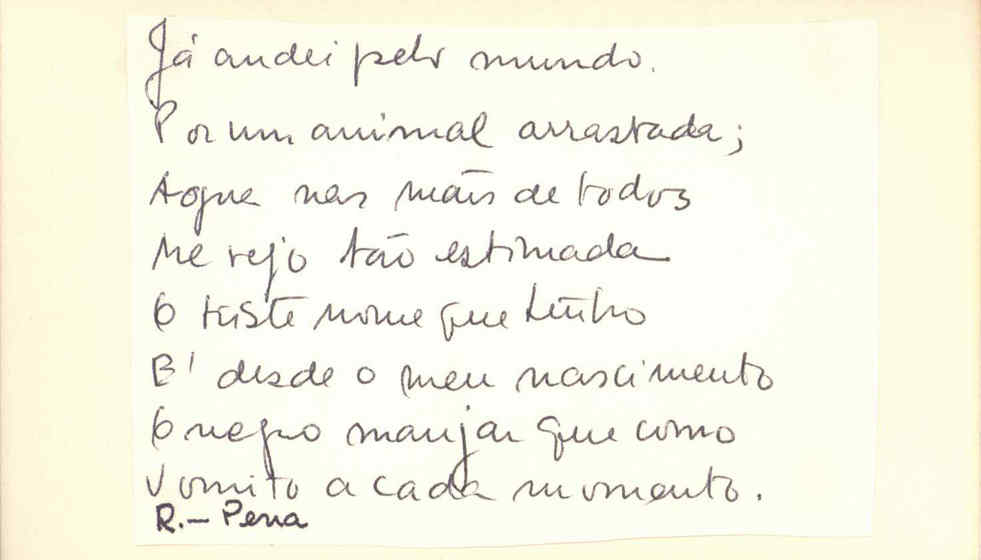 Já andei pelo mundo.
Por um animal arrastada;
Aqui nas mãos de todos
Me vejo tão estimada
O triste nome que tenho
É desde o meu nascimento
O negro manjar que como
Vomito a cada momento.
R.- Pena